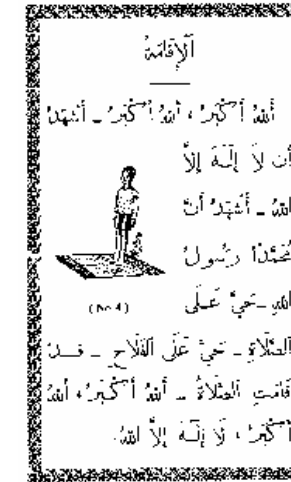 اَلْإِقَامَةُ
اَللهُ أَكْبَرُ ، اَللهُ أَكْبَرُ ـ أَشْهَدُ
أَن لاَ إِلَـهَ إِلاَّ
اللهُ ـ أَشْهَدُ أَنَّ
مُحَمَّدًا رَسُولُ
اللهِ ـ حَيَّ عَـلَى
(No 4)
الصَّلَاةِ ـ حَيَّ عَلَى الفَلَاحِ ـ قَـدْ
قَامَتِ الصَّلَاةُ ـ اَللهُ أَكْبَرُ ، اَللهُ
أَكْبَرُ ، لَا إِلَـهَ إِلاَّ اللهُ